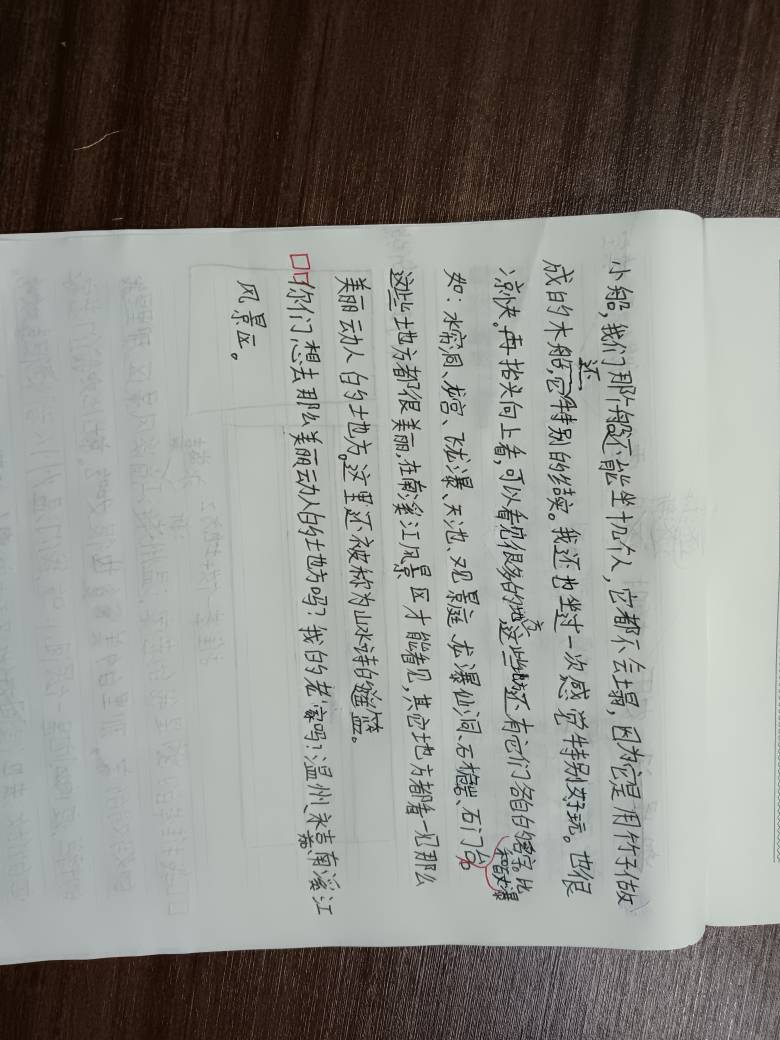 小船，我们那个船还能坐十几个人，它都不会塌，因为它是用竹子做
成的木船，它还特别的结实。我还也坐过一次感觉特别好玩。也很
凉快。再抬头向上看，可以看见很多的地方这些地方还有它们各自的名字。比
如：水帘洞、龙宫、飞龙瀑、天池、观景庭、龙瀑仙洞、石桅岩、石门台。
这些地方都很美丽，在南溪江风景区才能看见，其它地方都看一见那么
美丽动人的地方。这里还被称为山水诗的摇篮。
你们想去那么美丽动人的地方吗？我的老家吗？温州永嘉南溪江
风景区。